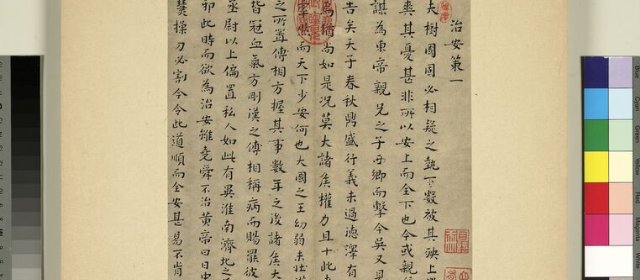 治安策一
夫樹國固必相疑之埶下數被其殃上
爽其憂甚非所以安上而全下也今或親
謀為東帝親兄之子西鄉而擊今吳又見
告矣天子春秋鼎盛行義未過德澤有
焉猶尚如是况莫大諸侯權力且十此
然而天下少安何也大國之王幼弱未壯
之所置傅相方握其事數年之後諸侯大
皆冠血氣方剛漢之傅相稱病而賜罷彼
丞尉以上偏置私人如此有異淮南濟北之
邪此時而欲為治安雖堯舜不治黃帝曰日中
熭操刀必割今令此道順而全安甚易不肯